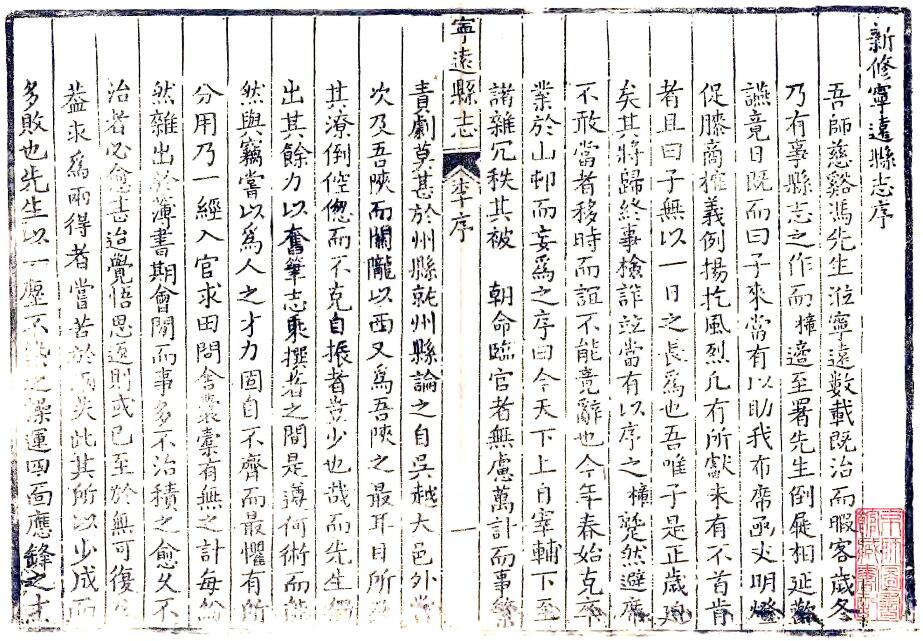 新修寧遠縣志序
吾師慈谿馮先生涖寧遠數載既治而暇客歲冬
乃有事縣志之作而樟適至署先生倒屣相延歡
讌竟日既而曰子來當有以助我布席函丈明燈
促膝商搉義例揚扢風烈凡有所獻未有不首肯
者且曰子無以一日之長為也吾唯子是正歲
矣其將歸終事檢詐竝當有以序之樟蹵然避席
不敢當者移時而誼不能竟辭也今年春始克卒
業於山邨而妄為之序曰今天下上自宰輔下至
諸雜冗秩其被 朝命臨官者無慮萬計而事繁
寧遠縣志 序
責劇莫甚於州縣就州縣論之自吳越大邑外當
次及吾陝而關隴以西又為吾陝之最耳目所
其潦倒倥傯而不克自振者豈少也哉而先生
出其餘力以奮筆志乘撰著之間是遵何術而能
然與竊嘗以為人之才力固自不齊而最懼有所
分用乃一經入官求田問舍裘橐有無之計每紛
然雜出於薄書期會閒而事多不治積之愈久不
治者必愈甚迨覺悟思返則或已至於無可復
葢求為兩得者嘗苦於兩失此其所以少成而
多敗也先生以一塵不 之操運四應 鋒之才